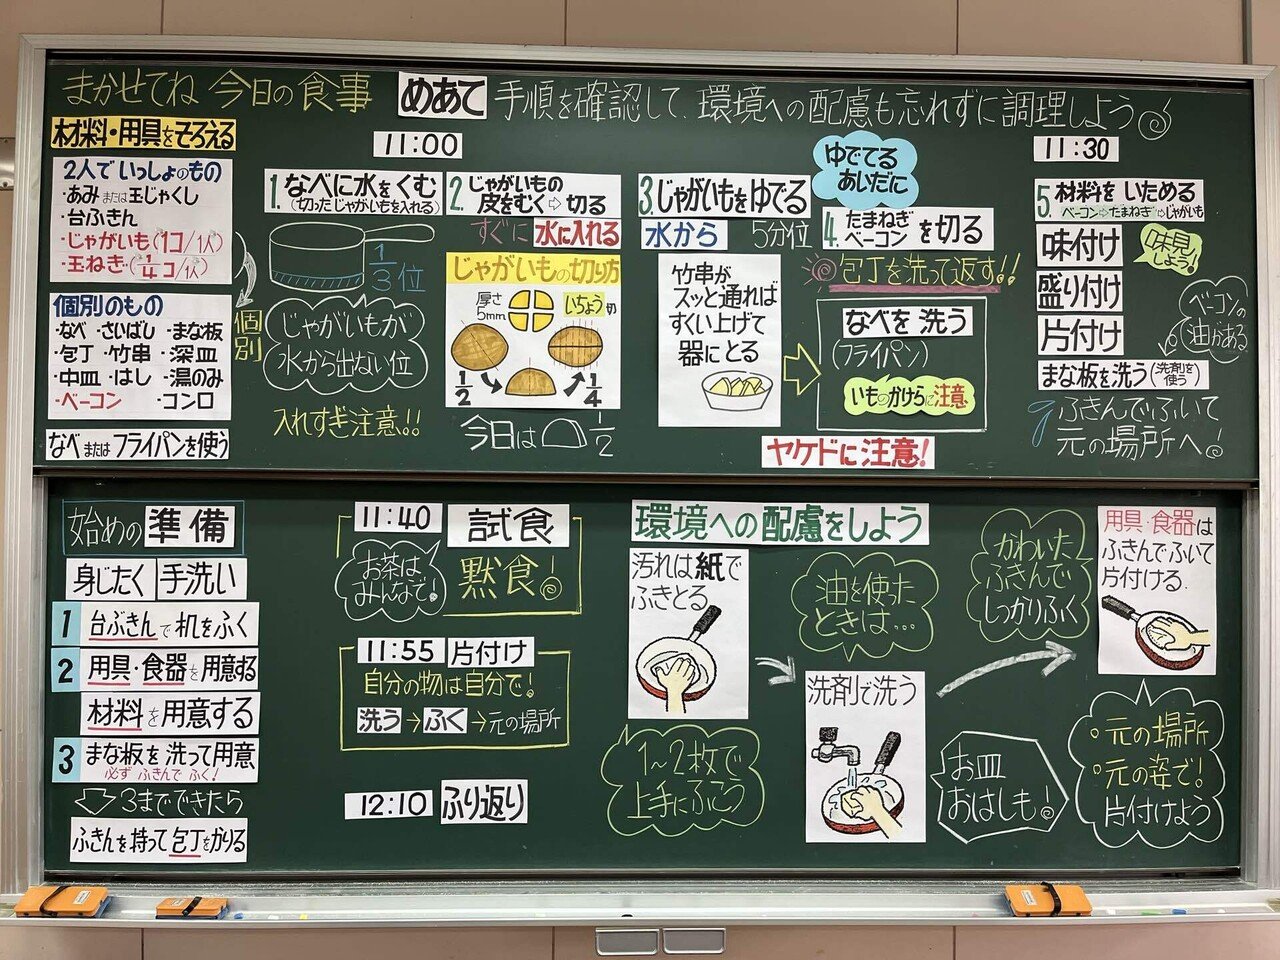 まかせてね 今日の食事
めあて
手順を確認して、環境への配慮も忘れずに調理しよう
材料・用具をそろえる
2人でいっしょのもの
・あみ または 玉じゃくし
・台ふきん
・じゃがいも(1コ/1人)
・玉ねぎ(1/4コ/1人)
個別のもの
・なべ ・さいばし ・まな板
・包丁 ・竹串 ・深皿
・中皿 ・はし ・湯のみ
・ベーコン ・コンロ
個別
なべ または フライパンを使う
11:00
1. なべに水をくむ
(切ったじゃがいもを入れる)
1/3位
じゃがいもが
水から出ない位
入れすぎ注意!!
2. じゃがいもの
皮をむく⇨切る
すぐに 水に入れる
じゃがいもの切り方
厚さ
5mm
いちょう切
1/2
1/4
今日は 1/2
3. じゃがいもをゆでる
水から 5分位
竹串が
スッと通れば
すくい上げて
器にとる
ゆでてる
あいだに
4. たまねぎ
ベーコン を切る
包丁を洗って返す!!
なべを洗う
(フライパン)
いものかけらに注意
ヤケドに注意!
11:30
5. 材料をいためる
ベーコン⇨たまねぎ⇨じゃがいも
味付け
味見しよう!
盛り付け
片付け
ベーコンの
油がある
まな板を洗う(洗剤を使う)
ふきんでふいて
元の場所へ!
始めの準備
身じたく 手洗い
1 台ぶきんで机をふく
2 用具・食器を用意する
材料を用意する
3 まな板を洗って用意
必ずふきんでふく!
3までできたら
ふきんを持って包丁をかりる
11:40 試食
お茶は
みんなで!
黙食!
11:55 片付け
自分の物は自分で!
洗う→ふく→元の場所
12:10 ふり返り
環境への配慮をしよう
汚れは紙で
ふきとる
1~2枚で
上手にふこう
油を使った
ときは…
洗剤で洗う
お皿
おはしも!
かわいた
ふきんで
しっかりふく
用具・食器は
ふきんでふいて
片付ける.
○元の場所
○元の姿で!
片付けよう